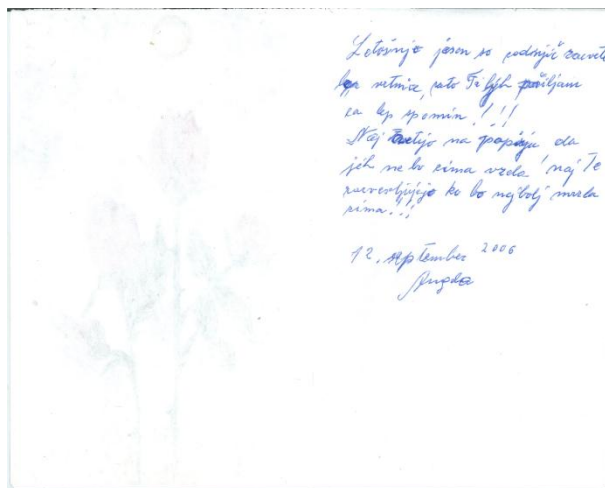 Letošnjo jesen so zadnjič zacvetele
lepe vrtnice, zato Ti jih pošiljam
za lep spomin!!!
Naj cvetijo na papirju da
jih ne bo zima vzela! naj Te
razveseljujejo ko bo najbolj mrzla
zima!!!
12. september 2006
Angela